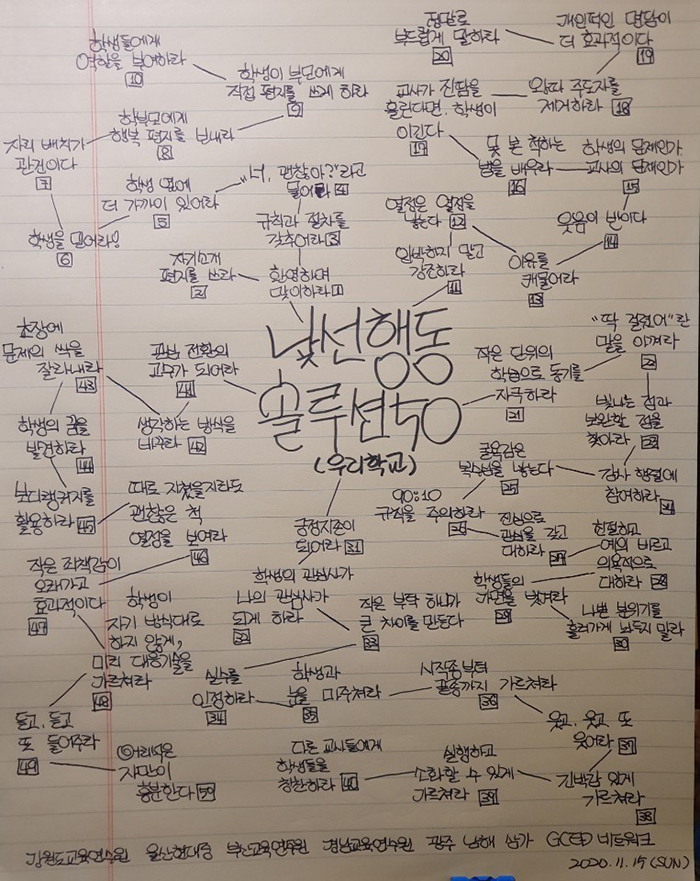 낯선행동
솔루션50
(우리학교)
환영하며
맞이하라 1
자기소개
편지를 쓰라 2
규칙과 절차를
갖추어라 3
"너, 괜찮아?"라고
물어라 4
학생 옆에
더 가까이 있어라
5
학생을 믿어라!
6
자리 배치가
관건이다
7
학부모에게
행복 편지를 보내라
8
학생이 부모에게
직접 편지를 쓰게 하라
9
학생들에게
역할을 부여하라
10
압박하지 말고
강조하라
11
열정은 열정을
낳는다 12
이유를
캐물어라
13
웃음이 반이다
14
학생의 문제인가
교사의 문제인가
15
못 본 척하는
법을 배우라
16
교사가 진땀을
흘린다면, 학생이
이긴다
17
왕따 주도자를
제거하라 18
개인적인 면담이
더 효과적이다
19
정말로
부드럽게 말하라
20
작은 단위의
학습으로 동기를
자극하라
21
"딱 걸렸어"란
말을 아껴라
22
빛나는 점과
보완할 점을
찾아라 23
감사 행렬에
참여하라 24
굴욕감은
복수심을 낳는다
25
90:10
규칙을 주의하라
26
진심으로
관심을 갖고
대하라 27
친절하고
예의 바르고
의욕적으로
대하라 28
학생들의
가면을 벗겨라
29
나쁜 분위기를
흘러가게 놔두지 말라
30
긍정지존이
되어라 31
학생의 관심사가
나의 관심사가
되게 하라
32
작은 부탁 하나가
큰 차이를 만든다
33
실수를
인정하라
34
학생과
눈을 마주쳐라
35
시작종부터
끝종까지 가르쳐라
36
웃고, 웃고, 또
웃어라 37
긴박감 있게
가르쳐라
38
실행하고
소화할 수 있게
가르쳐라 39
다른 교사들에게
학생들을
칭찬하라 40
관심 전환의
고수가 되어라
41
생각하는 방식을
바꾸라 42
초장에
문제의 싹을
잘라내라
43
학생의 꿈을
발견하라
44
보디랭귀지를
활용하라 45
때로 지쳤을지라도
괜찮은 척
열정을 보여라
46
작은 죄책감이
오래가고
효과적이다
47
학생이
자기 방식대로
하지 않게,
미리 대응기술을
가르쳐라
48
듣고, 듣고
또 들어주라
49
어리석은
자만이
흥분한다 50
강원도교육연수원 울산현대중 부산교육연수원 경남교육연수원 광주 남해 상가 GCED 네트워크
2020.11.15(SUN)